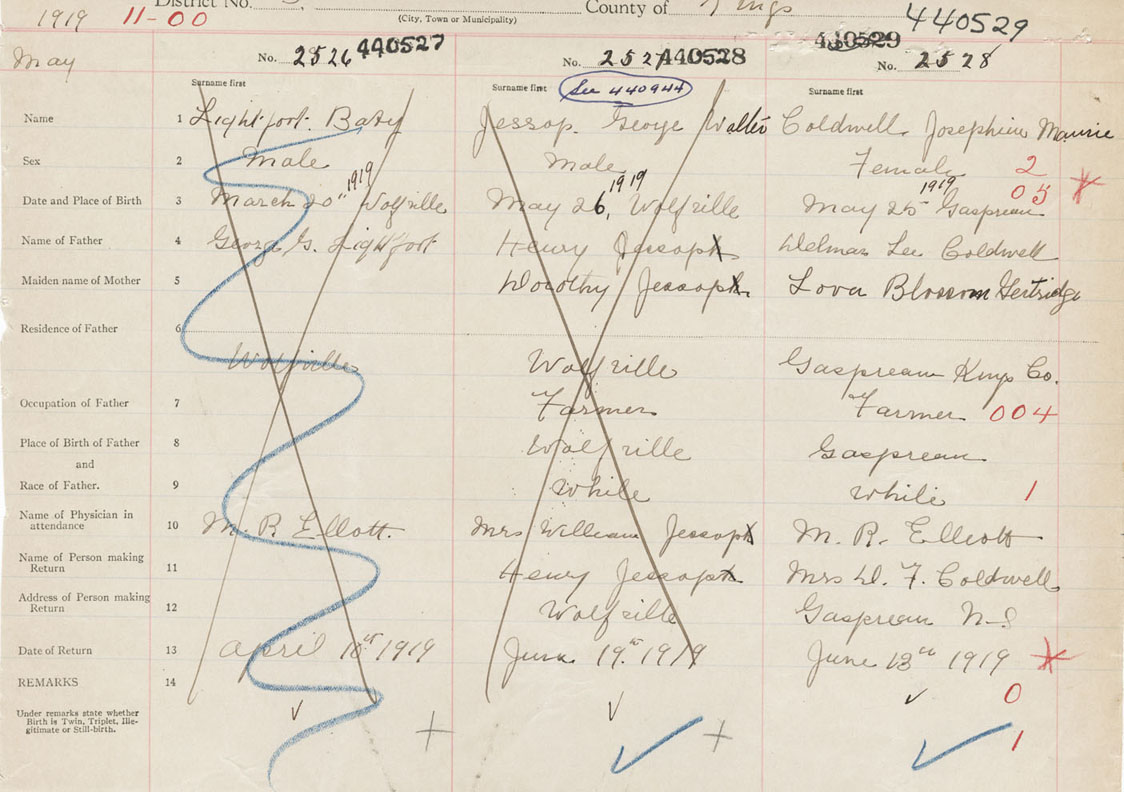 1919 11-00 District No. County of Kings 440529
(City, Town or Municipality)
May No. 2526 440527 No. 2527 440528 440529 No. 2528
Surname first Surname first See 440944 Surname first
Name 1 Lightfoot. Baby Jessop. George Walter Coldwell. Josephine
Sex 2 Male Male Female 2
Date and Place of Birth 3 March 20" 1919 Wolfville May 26, 1919 Wolfville May 25" 1919 Gaspreau 05
Name of Father 4 George G. Lightfoot Henry Jessop Delmar Lee Coldwell
Maiden name of Mother 5 Dorothy Jessop Lova Blossom Gertridge
Residence of Father 6
Wolfville Wolfville Gaspreau Kings Co.
Occupation of Father 7 Farmer Farmer 004
Place of Birth of Father 8 Wolfville Gaspreau
and
Race of Father. 9 White White 1
Name of Physician in 10 M. R. Elliott. Mrs William Jessop M. R. Elliott
attendance
Name of Person making 11 Henry Jessop Mrs D. F. Coldwell
Return
Address of Person making 12 Wolfville Gaspreau N-S
Return
Date of Return 13 April 1919 June 19th 1919 June 13th 1919
REMARKS 14 0
Under remarks state whether
Birth is Twin, Triplet, Ille-
gitimate or Still-birth. 1